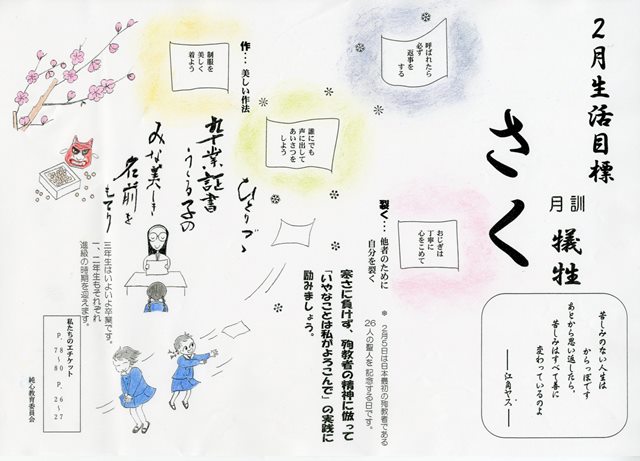 2月生活目標
さく
月訓 犠牲
苦しみのない人生は
からっぽです
あとから思い返したら、
苦しみはすべて善に
変わっているのよ
――江角ヤス――
呼ばれたら
必ず
返事を
する
おじぎは
丁寧に
心をこめて
裂く…他者のために
自分を裂く
＊2月5日は日本最初の殉教者である
26人の聖人を記念する日です。
寒さに負けず、殉教者の精神に倣って
「いやなことは私がよろこんで」の実践に
励みましょう。
誰にでも
声に出して
あいさつを
しよう
作…美しい作法
制服を
美しく
着よう
ひとりづゝ
卒業証書
うくる子の
みな美しき
名前を
もてり
三年生はいよいよ卒業です。
一、二年生もそれぞれ
進級の時期を迎えます。
私たちのエチケット
P.78～80
P.26～27
純心教育委員会